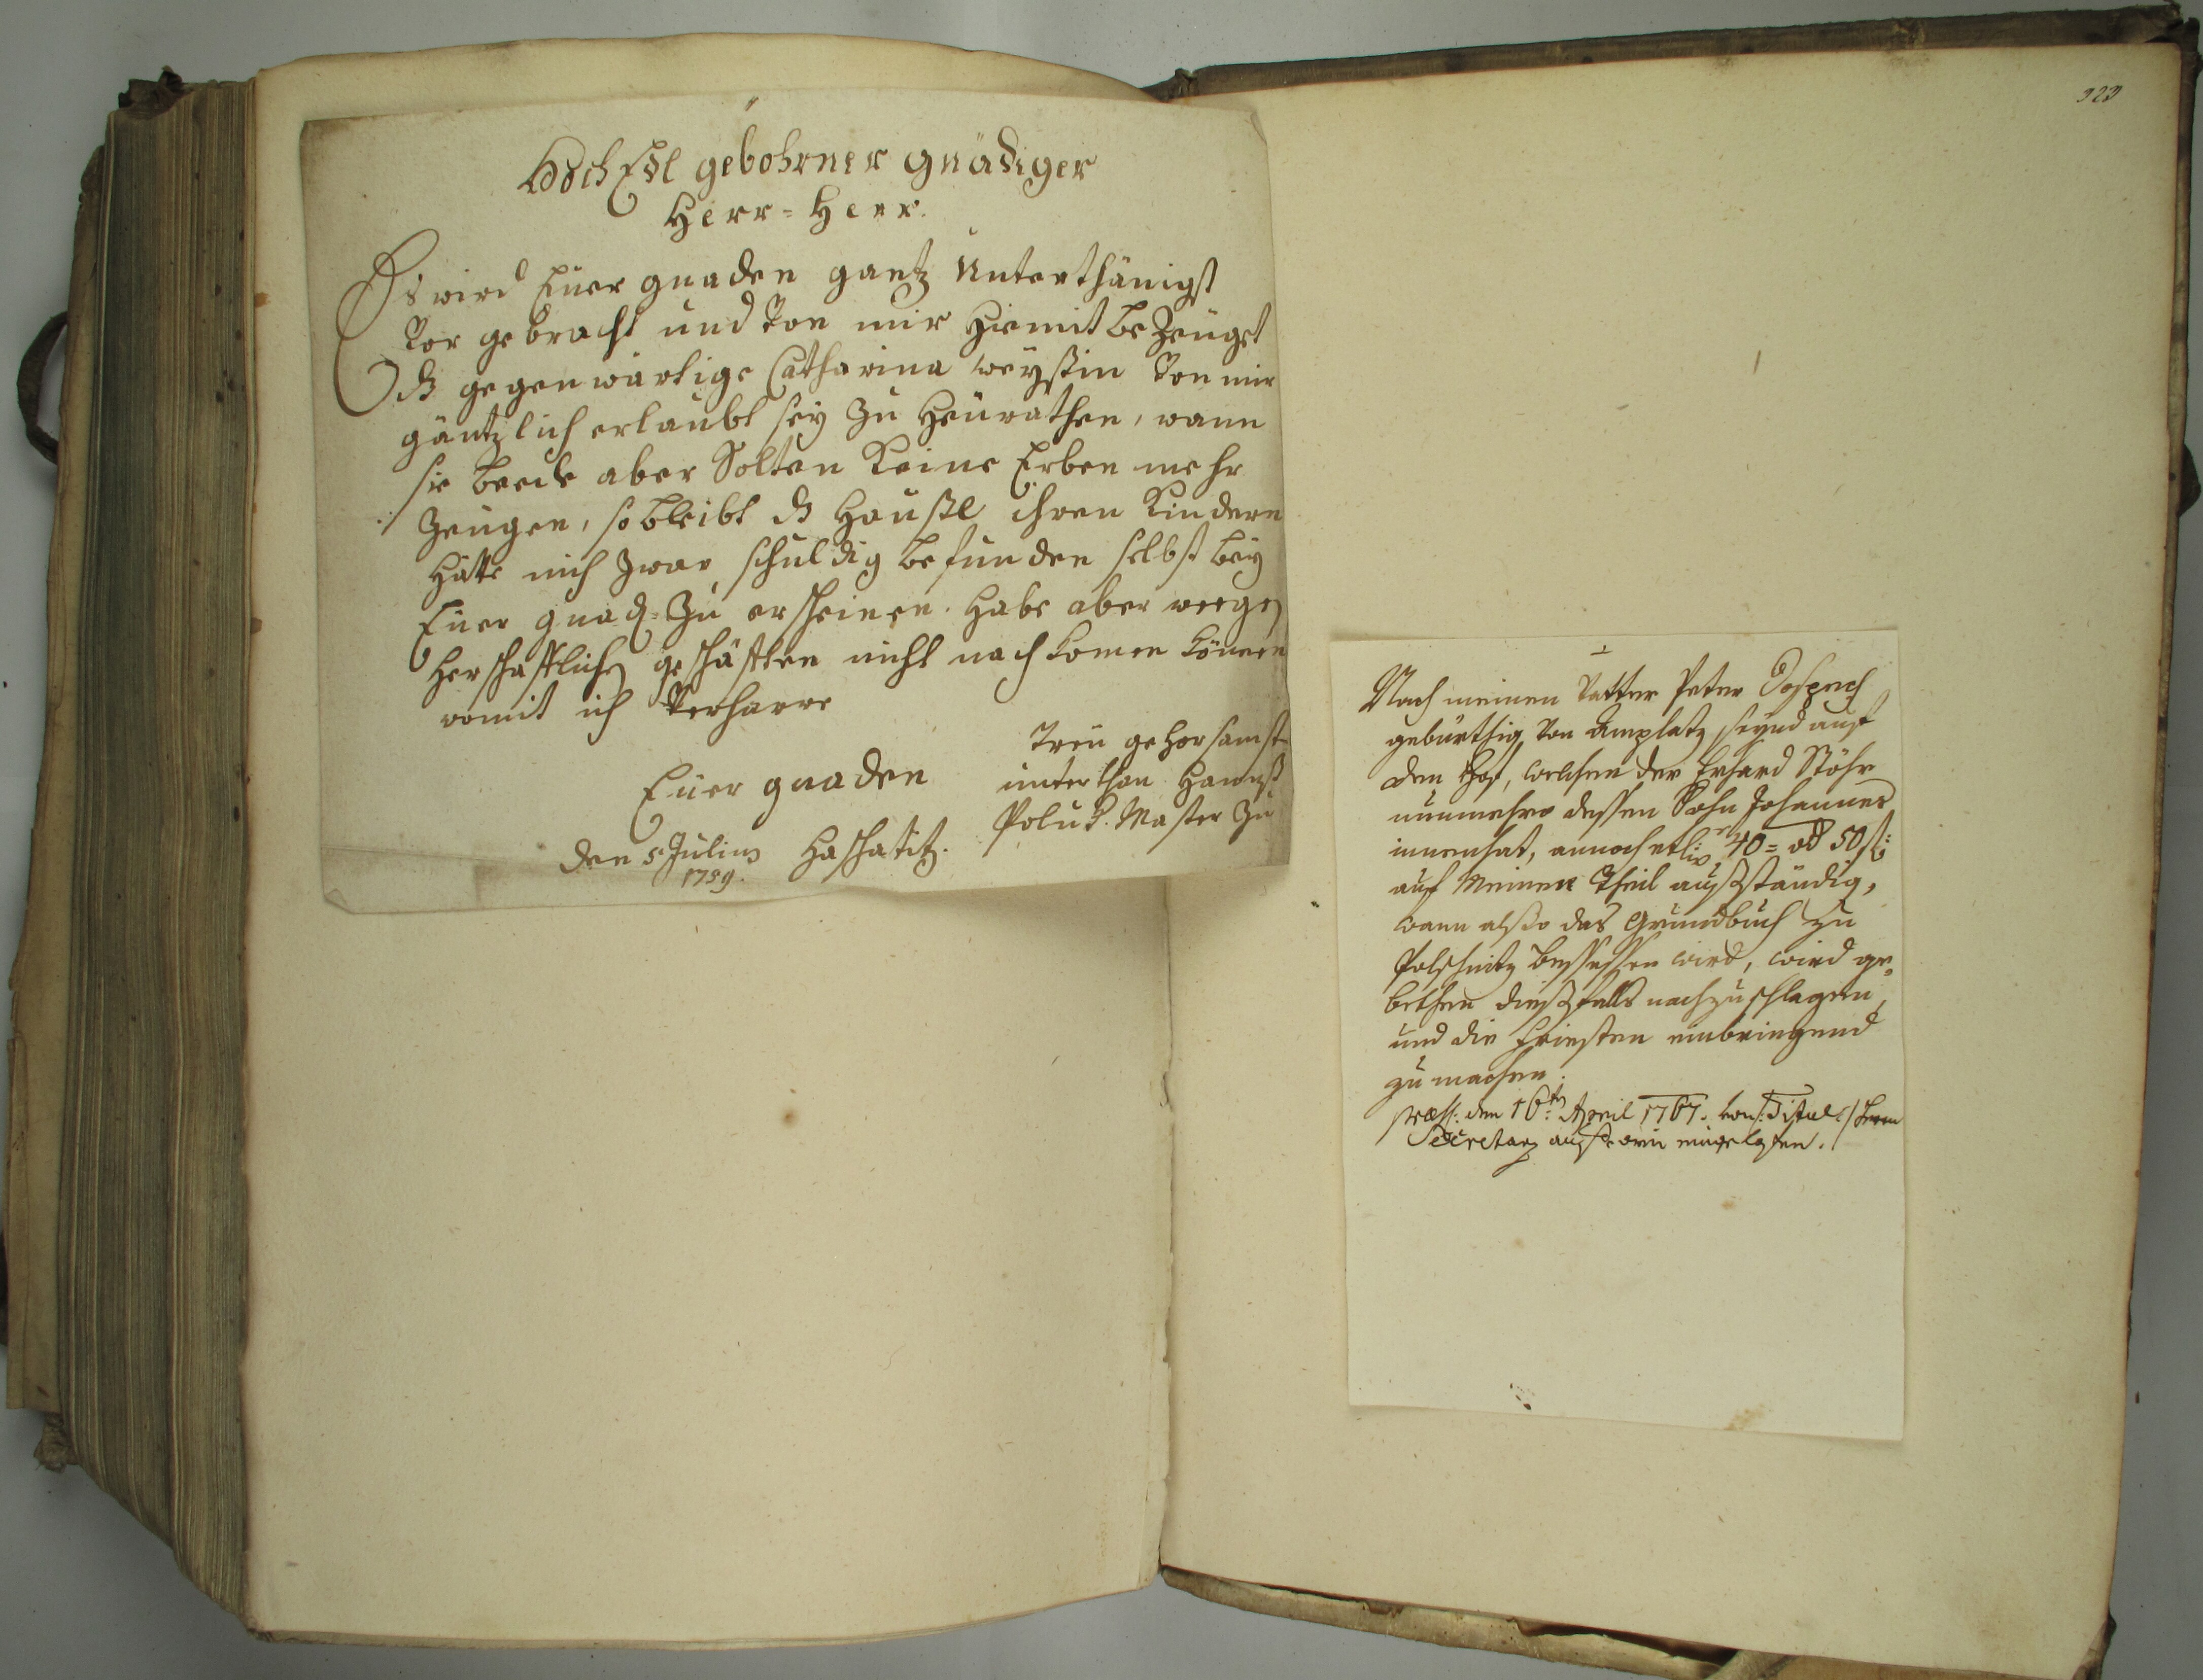 Hoch Edl gebohrner gnädiger
Herr = Herr.
Es wird Euer gnaden gantz Unterthänigst
Vor gebracht und von mir Hiemit beZeuget
dß gegenwärtige Catharina weyßin von mir
gäntzlich erlaubt sey Zu Heürathen, wann
sie beede aber Solten Keine Erben mehr
Zeugen, so bleibt dß Haußl ihren Kindern
Hätte mich Zwar schuldig befunden selbst bey
Euer gnad: Zu erscheinen. Habe aber weegen
Herschafftlichen geschäfften nicht nach komen können
womit ich Verharre
Euer gnaden
Treu gehorsamst
unterthan Hannß
Polu
Master Zu
Haschatitz.
den 5. Julius
1759.
323
Nach meinen Vatter Peter
gebürthig von Amplatz, seynd auf
dem Hof, welchen der Erhard Stöhr
nunmehro dessen Sohn Johannes
innenhat, annoch etlich 40 = od 50 f:
auf Meinen Theil außständig,
wann also das Grundbuch zu
Polschnitz besessen wird, wird ge=
bethen dießfalls nachzuschlagen,
und die Friesten einbringend
zu machen.
præs: den 16ten April 1767. von |: Titul :| Herrn
Secretary